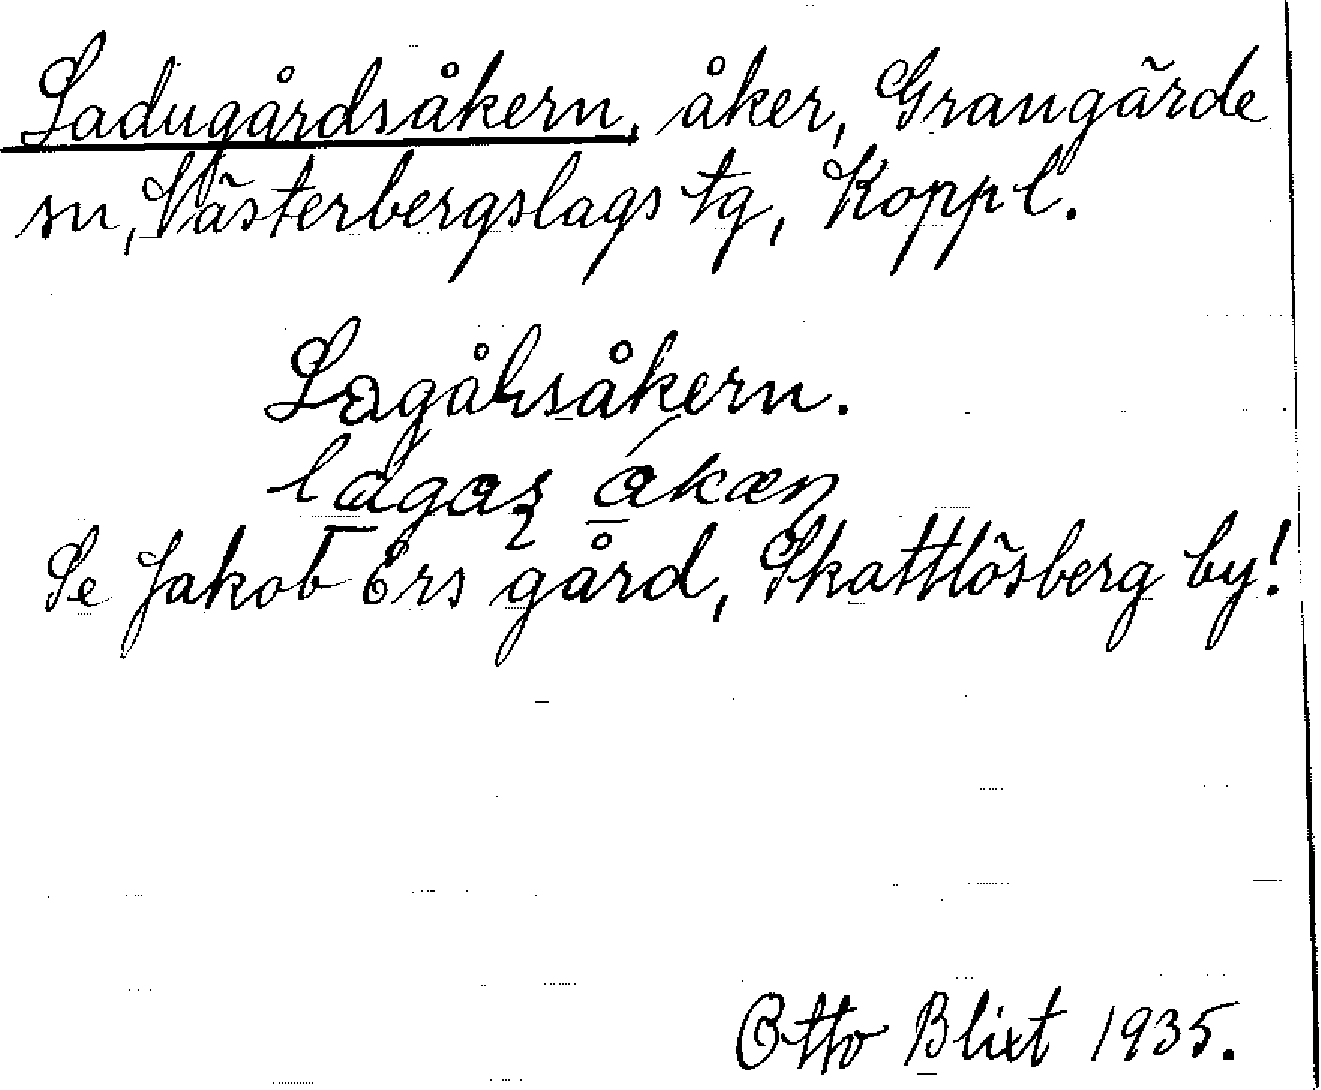 Ladugårdsåkern, åker, Grangärde
sn, Västerbergslags tg, Koppl.
Lagålsåkern.
Se Jakob Ers gård, Skattlösberg by!
Otto Blixt 1935.